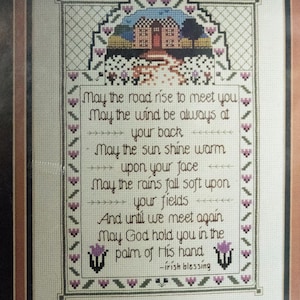 May the road rise to meet you
May the wind be always at
your back
May the sun shine warm
upon your face
May the rains fall soft upon
your fields
And until we meet again
May God hold you in the
palm of His hand
~irish blessing